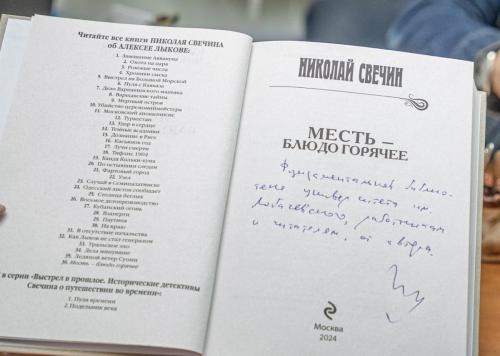 Читайте все книги НИКОЛАЯ СВЕЧИНА
об АЛЕКСЕЕ ЛЫКОВЕ:
1. Завещание Аввакума
2. Охота на царя
3. Роковые числа
4. Хроники сыска
5. Выстрел на Большой Морской
6. Пуля с Кавказа
7. Дело Варнавинского маньяка
8. Варшавские тайны
9. Мертвый остров
10. Убийство церемониймейстера
11. Московский апокалипсис
12. Туркестан
13. Удар в сердце
14. Темные всадники
15. Дознание в Риге
16. Касьянов год
17. Лучи смерти
18. Тифлис 1904
19. Банда Кольки-куна
20. По остывшим следам
21. Фартовый город
22. Узел
23. Случай в Семипалатинске
24. Одесский листок сообщает
25. Столица беглых
26. Восьмое делопроизводство
27. Кубанский огонь
28. Взаперти
29. Паутина
30. На краю
31. В отсутствие начальства
32. Как Лыков не стал генералом
33. Уральское зло
34. Дела минувшие
35. Ледяной ветер Суоми
36. Месть — блюдо горячее
в серии «Выстрел в прошлое. Исторические детективы
Свечина о путешествии во времени»:
1. Пуля времени
2. Подельник века
НИКОЛАЙ СВЕЧИН
МЕСТЬ —
БЛЮДО ГОРЯЧЕЕ
Фундаментальной библио-
теке университета им.
Лобачевского, работникам
и читателям, от автора.
Москва
2024